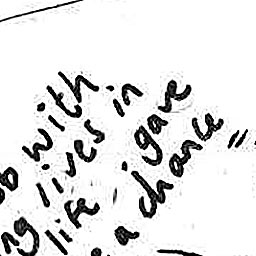 with
lives in
life i gave
a chance "